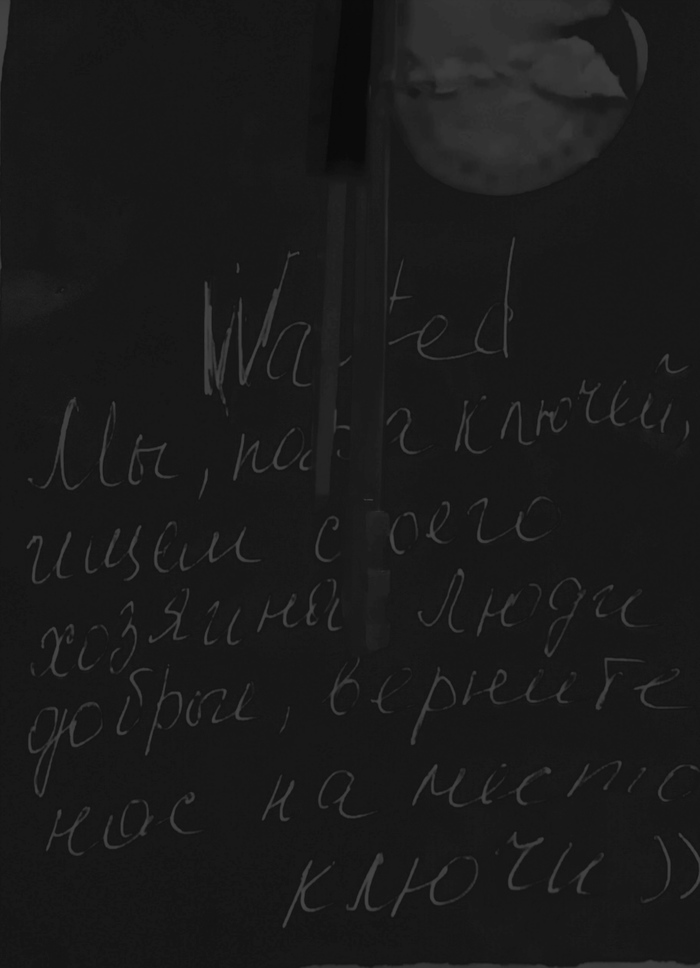 Wanted
Мы, пара ключей,
ищем своего
хозяина люди
добрые, верните
нас на место
ключи ))